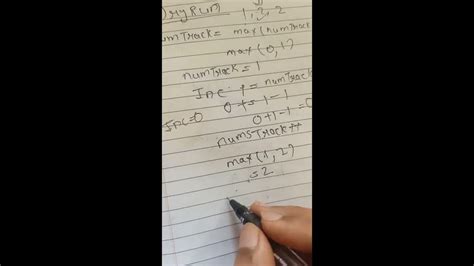 DryRun 1, 2, 2
numTrack= max(numTrack
max(0,1)
numTrack = 1
Inc += numTrack
0 += 1-1
Inc=0 0+1-1=0
numsTrack++
max(1,2)
=2